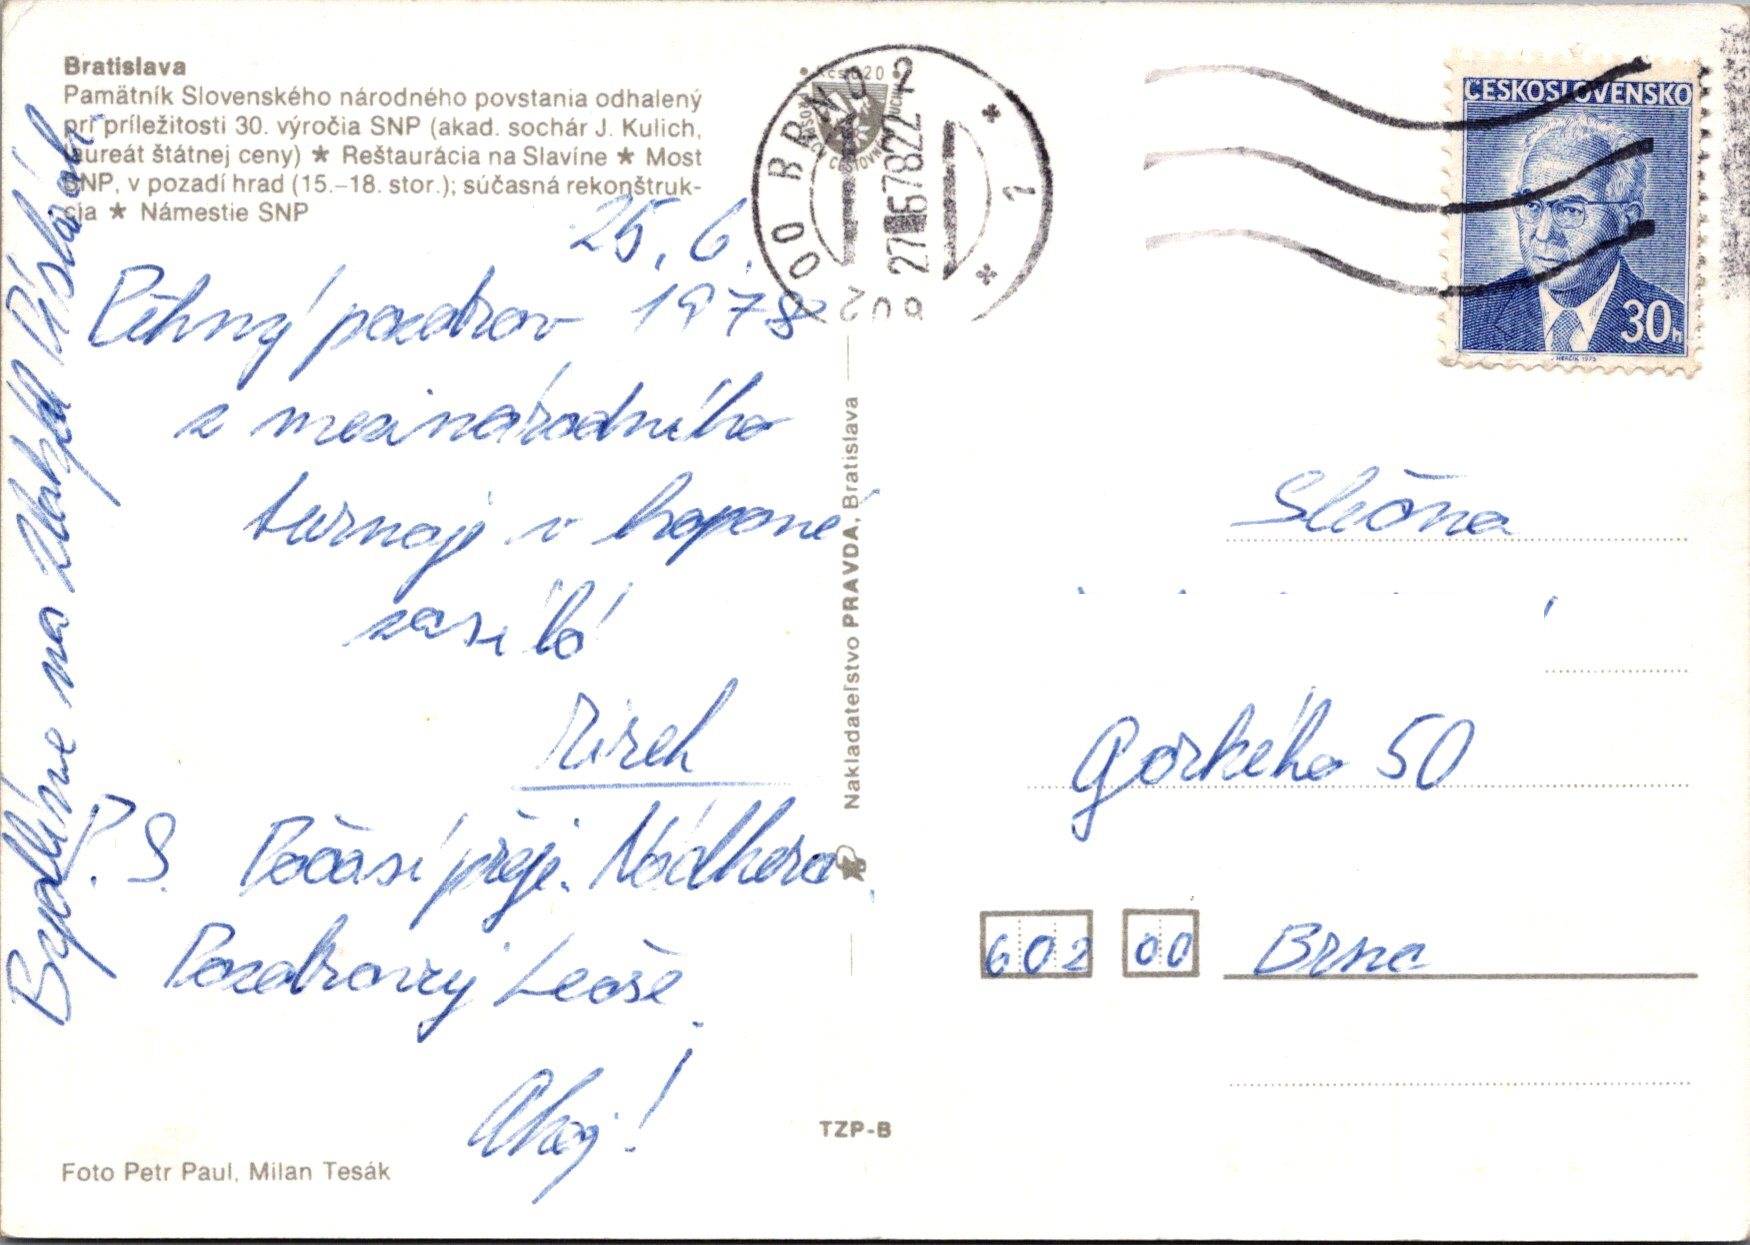 Bratislava
Pamätník Slovenského národného povstania odhalený
pri príležitosti 30. výročia SNP (akad. sochár J. Kulich,
laureát štátnej ceny) ★ Reštaurácia na Slavíne ★ Most
SNP, v pozadí hrad (15.–18. stor.); súčasná rekonštruk-
cia ★ Námestie SNP
25. 6.
1978
Pěkný pozdrav
z mezinárodního
turnaje v kopané
zasílá
Mirek
P.S. Počasí přeje. Nádhera.
Pozdravuj Leoše.
Ahoj!
Bydlíme na
Foto Petr Paul, Milan Tesák
Nakladateľstvo PRAVDA, Bratislava
TZP-B
BRNO 2
27.-6.78 22
602 00
ČESKOSLOVENSKO
30h
Slečna
Gorkého 50
602 00 Brno